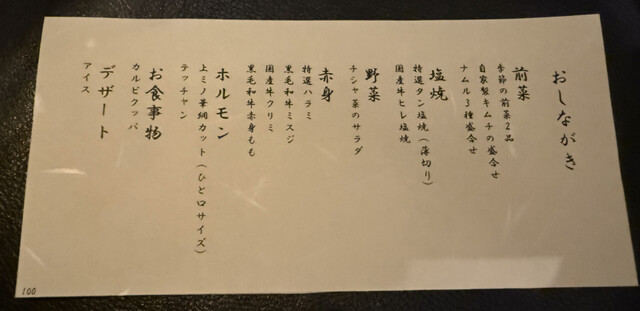 おしながき
前菜
季節の前菜2品
自家製キムチの盛合せ
ナムル3種盛合せ
塩焼
特選タン塩焼(薄切り)
国産牛ヒレ塩焼
野菜
チシャ菜のサラダ
赤身
特選ハラミ
黒毛和牛ミスジ
国産牛クリミ
黒毛和牛赤身もも
ホルモン
上ミノ華網カット(ひと口サイズ)
テッチャン
お食事物
カルビクッパ
デザート
アイス
100